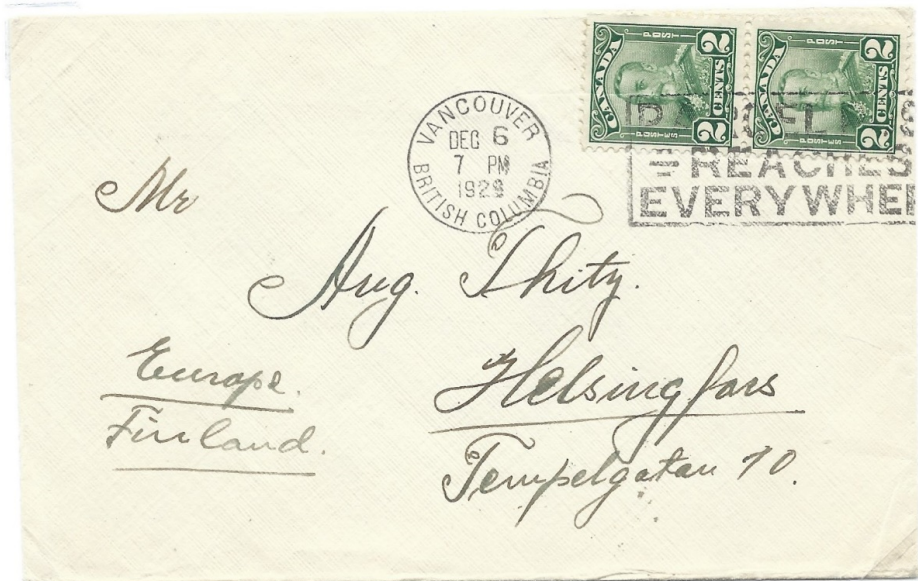 CANADA POSTES POST 2 CENTS 2
CANADA POSTES POST 2 CENTS 2
VANCOUVER
DEC 6
7 PM
1928
BRITISH COLUMBIA
REACHES
EVERYWHER
Mr
Aug. Thitz.
Europe.
Finland.
Helsingfors
Tempelgatan 10.